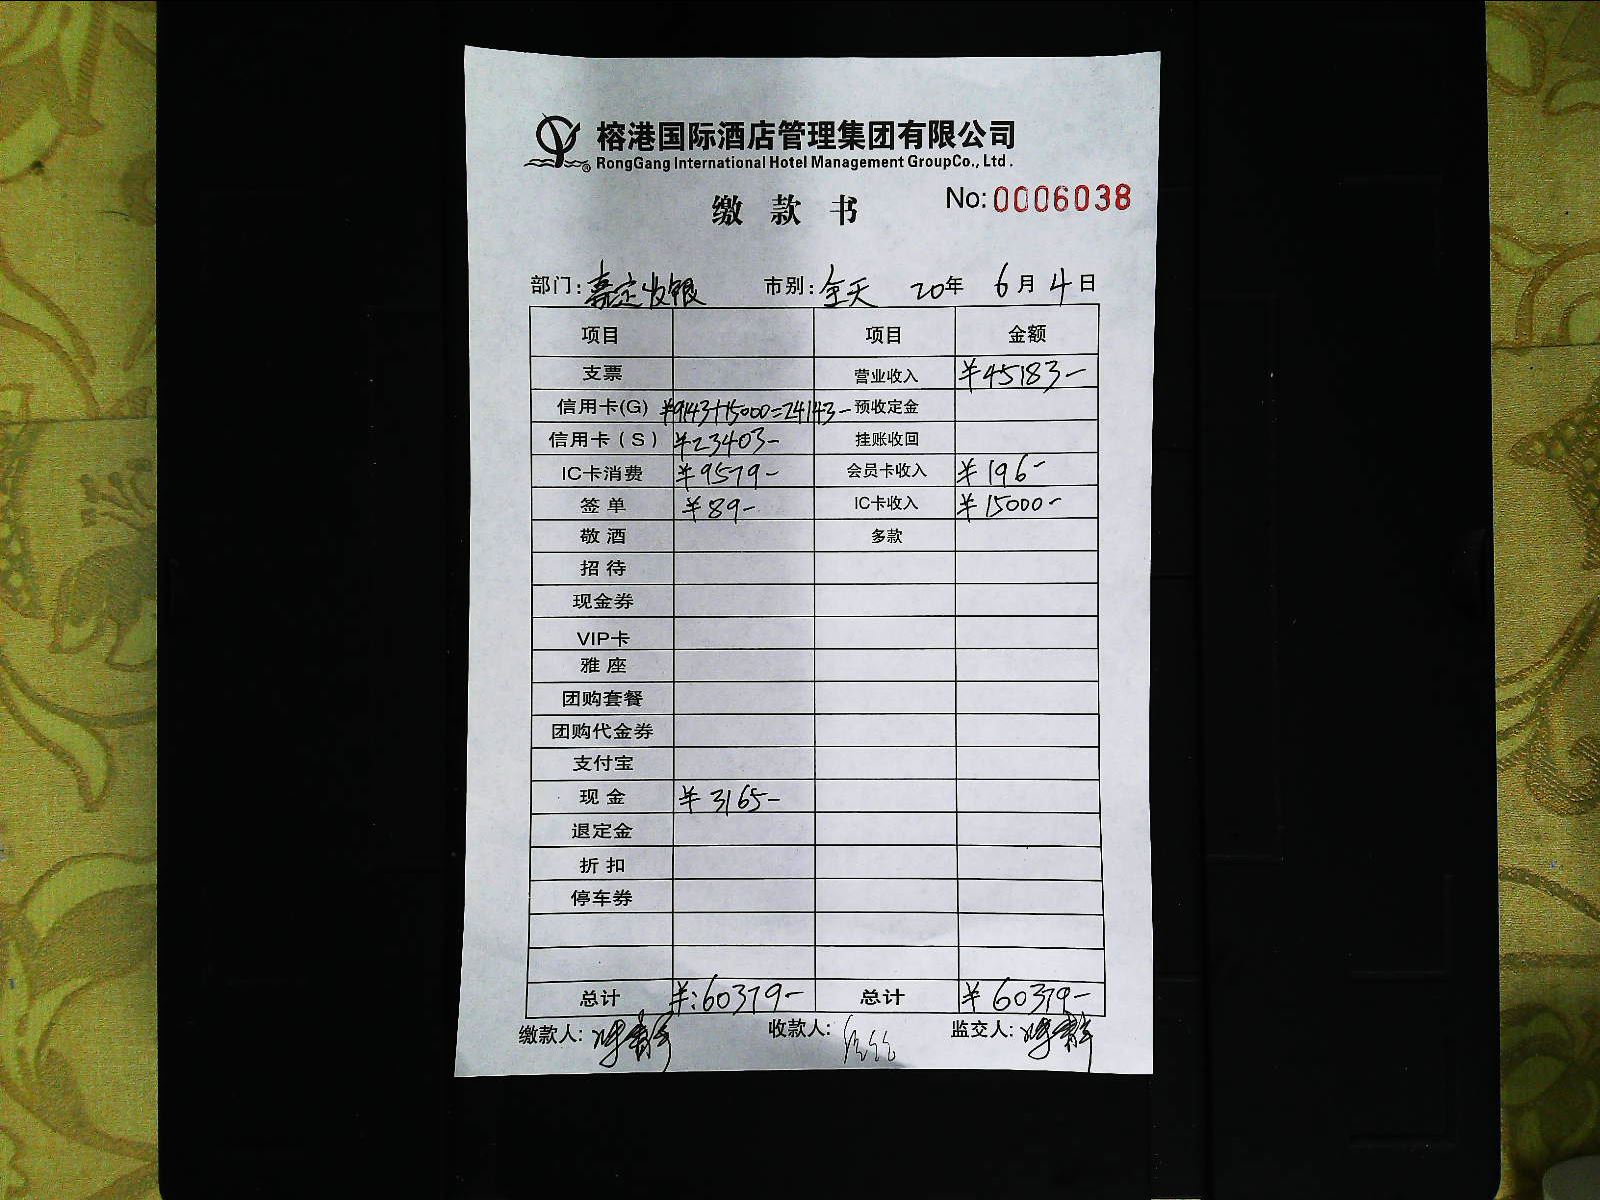 榕港国际酒店管理集团有限公司
RongGang International Hotel Management GroupCo., Ltd.
缴款书
No: 0006038
部门: 嘉定收银 市别: 全天 20年 6月 4日
项目 项目 金额
支票 营业收入 ¥45183-
信用卡(G) ¥9143+15000=24143- 预收定金
信用卡(S) ¥23403- 挂账收回
IC卡消费 ¥9579- 会员卡收入 ¥196-
签单 ¥89- IC卡收入 ¥15000-
敬酒 多款
招待
现金券
VIP卡
雅座
团购套餐
团购代金券
支付宝
现金 ¥3165-
退定金
折扣
停车券
总计 ¥:60379- 总计 ¥60379-
缴款人: 收款人: 监交人: